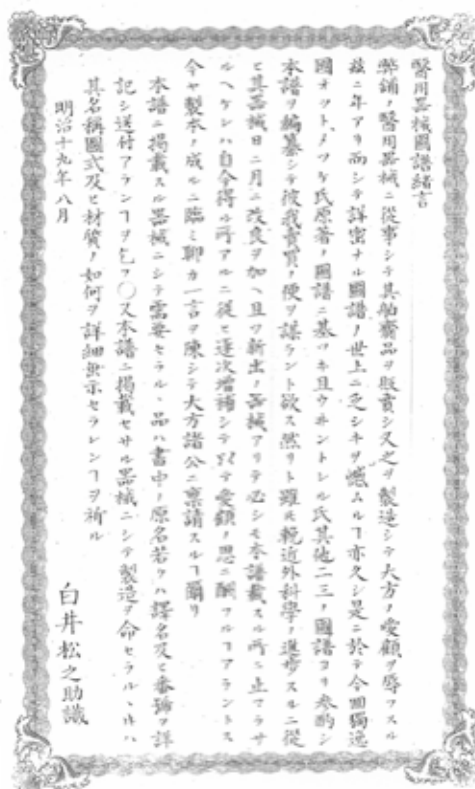 醫用器械圖譜緒言
弊舖ノ醫用器械ニ從事シテ其舶齎品ヲ販賣シ又之ヲ製造シテ大方ノ愛顧ヲ辱フスル
玆ニ年アリ而シテ詳密ナル圖譜ノ世上ニ乏シキヲ憾ムルヿ亦久シ是ニ於テ今回獨逸
國オットメツケ氏原著ノ圖譜ニ基ツキ且ウヰントレル氏其他二三ノ圖譜ヨリ參酌シ
本譜ヲ編纂シテ彼我賣買ノ便ヲ謀ラント欲ス然リト雖モ輓近外科學ノ進歩スルニ從
ヒ其器械日ニ月ニ改良ヲ加ヘ且ツ新出ノ器械アリテ必シモ本譜載スル所ニ止マラサ
ルヘケレハ自今得ル所アルニ從ヒ逐次增補シテ以テ愛顧ノ恩ニ酬フルヿアラントス
今ヤ製本ノ成ルニ臨ミ聊カ一言ヲ陳シテ大方諸公ニ稟請スルヿ爾リ
本譜ニ掲載スル器械ニシテ需要セラルヽ品ハ書中ノ原名若クハ譯名及ヒ番號ヲ詳
記シ送付アランヿヲ乞フ○又本譜ニ掲載セサル器械ニシテ製造ヲ命セラルヽ時ハ
其名稱圖式及ヒ材質ノ如何ヲ詳細敎示セラレンヿヲ祈ル
明治十九年八月
白井松之助識